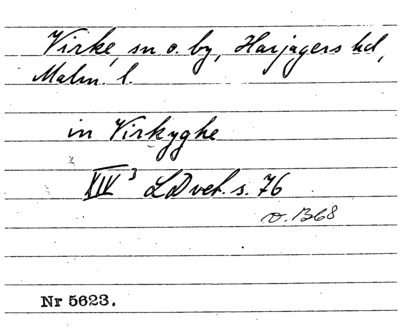 Virke, sn o. by, Harjagers hd,
Malm. l.
in Virkyghe
XIV 3 LD vet. s. 76
o. 1368
Nr 5623.